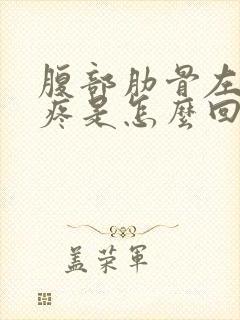 腹部肋骨左
疼是怎麼回
盖荣軍